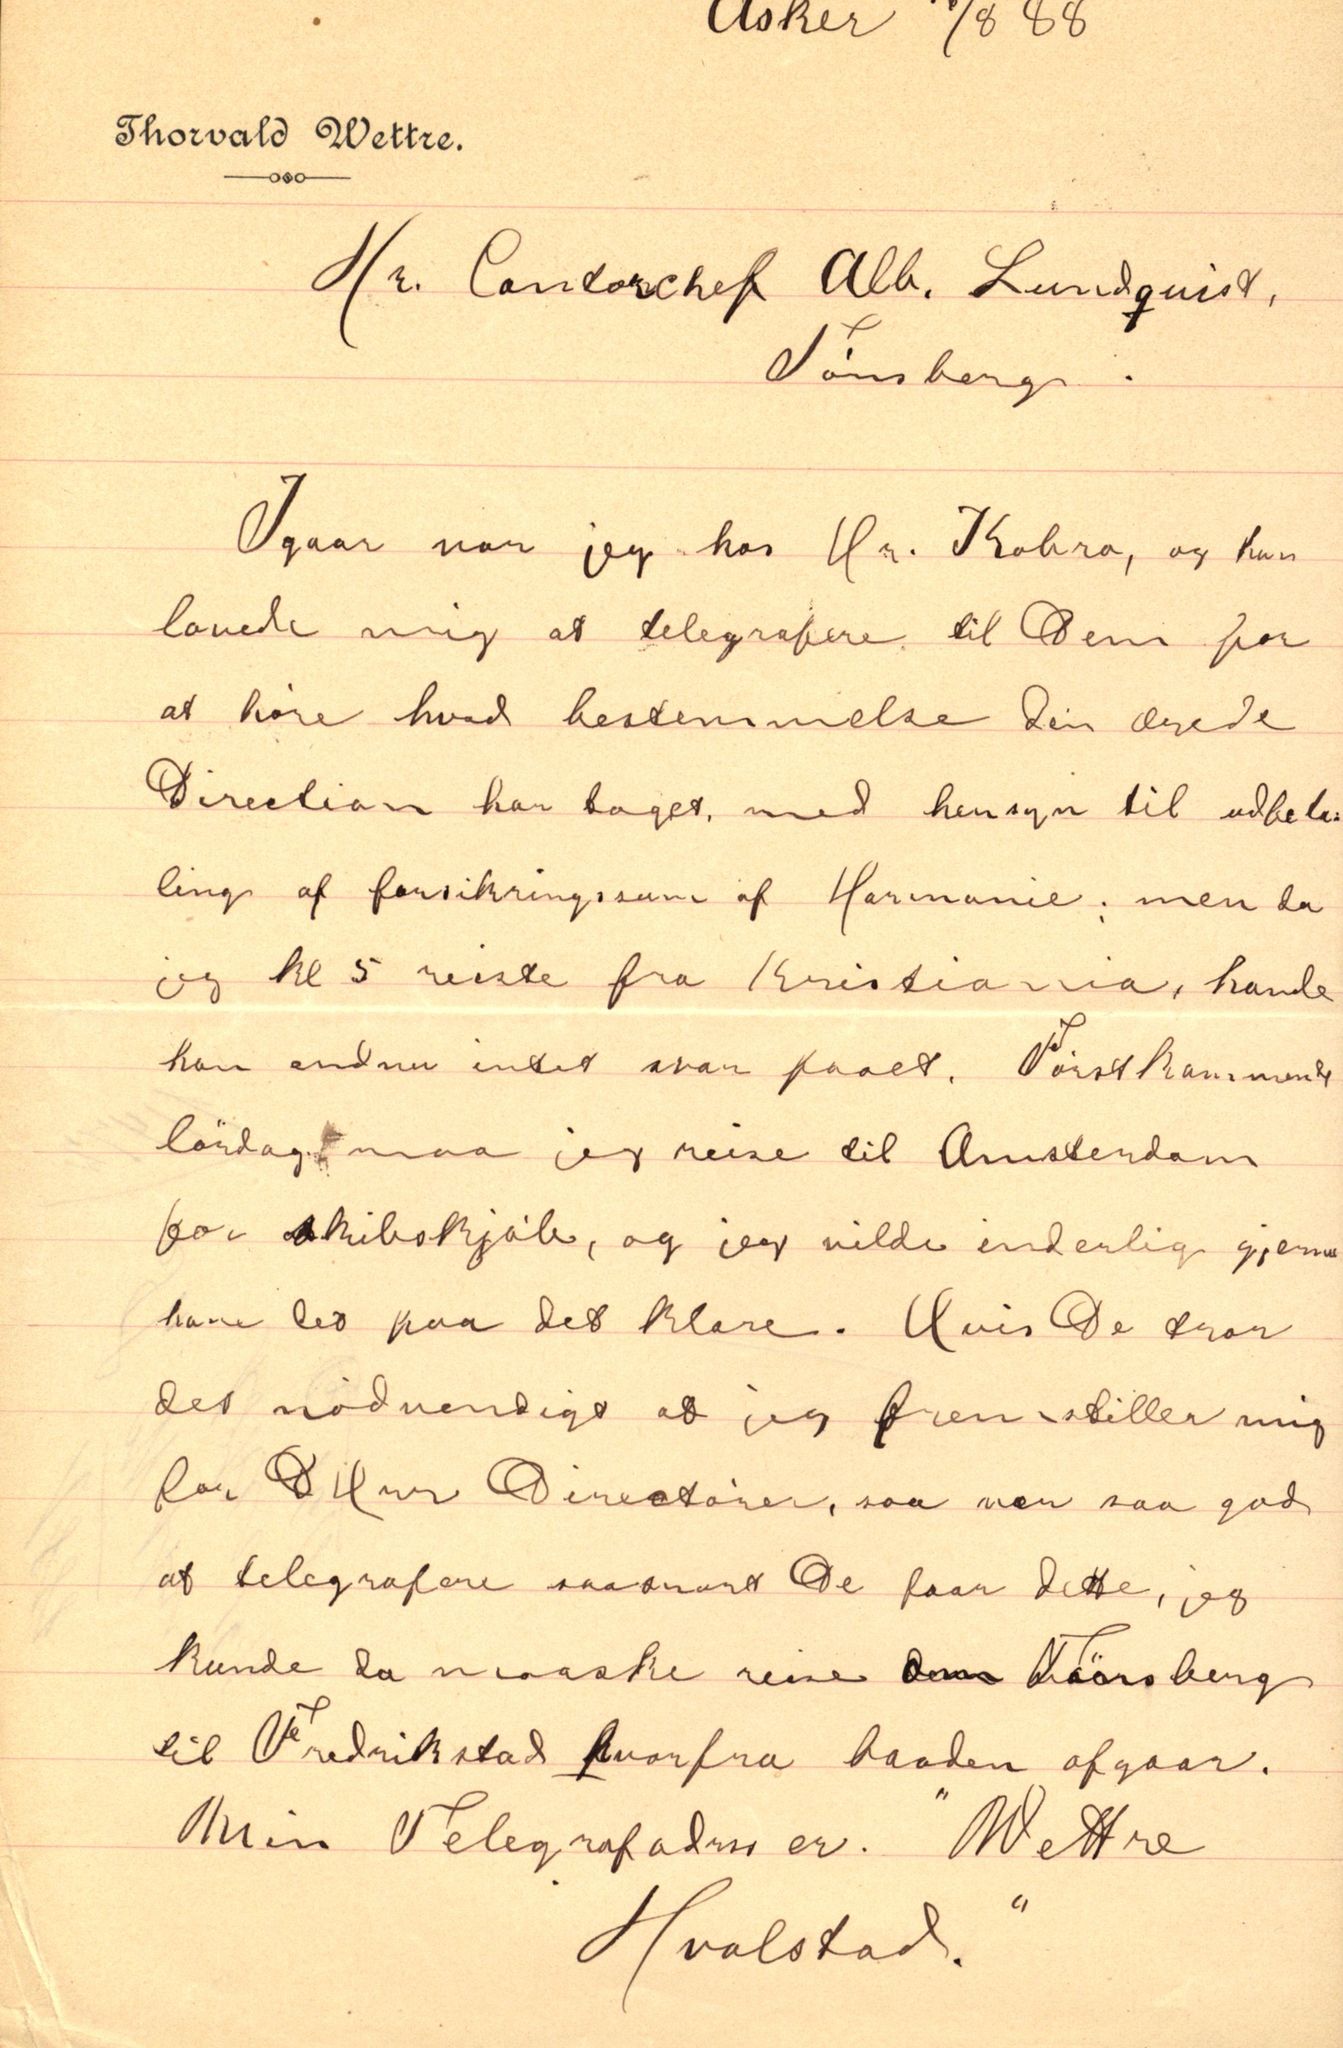 Asker /8 88
Thorvald Wettre.
Hr. Contorchef Alb. Lundquist,
Tönsberg.
Igaar var jeg hos Hr. Kobro, og han
lovede mig at telegrafere til Dem for
at høre hvad bestemmelse din ærede
Direction har taget, med hensyn til udbeta-
ling af forsikringssum af Harmonie; men da
jeg kl 5 reiste fra Kristiania, havde
han endnu intet svar faaet. Førstkommende
lördag maa jeg reise til Amsterdam
for skibskjøb, og jeg vilde inderlig gjerne
have det paa det klare. Hvis De tror
det nödvendigt at jeg fremstiller mig
for D'Hrr Directører, saa vær saa god
at telegrafere saasnart De faar dette, jeg
kunde da maaske reise om Töönsberg
til Fredrikstad hvorfra baaden afgaar.
Min Telegrafadrss er. "Wettre
Hvalstad."